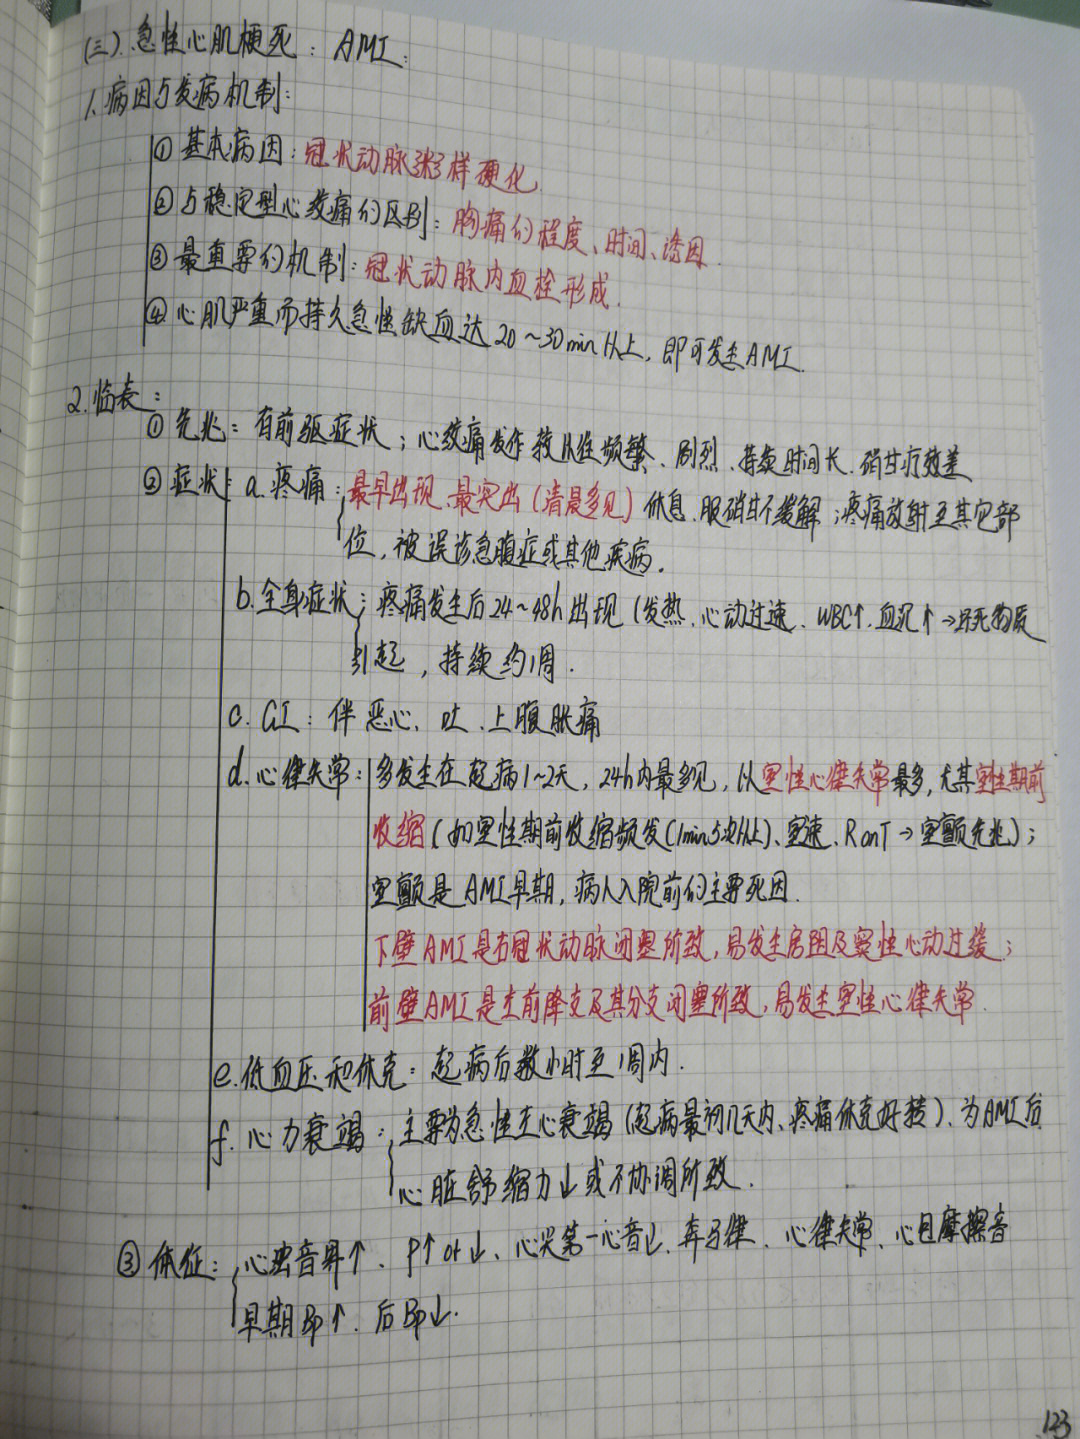 (三). 急性心肌梗死：AMI：
1、病因与发病机制：
① 基本病因：冠状动脉粥样硬化
② 与稳定型心绞痛的区别：胸痛的程度、时间、诱因.
③ 最重要的机制：冠状动脉内血栓形成.
④ 心肌严重而持久急性缺血达20～30min以上，即可发生AMI.
2.临表：
① 先兆：有前驱症状；心绞痛发作较以往频繁、剧烈、持续时间长、硝甘疗效差
② 症状：a.疼痛：最早出现、最突出(清晨多见)休息、服硝甘不缓解；疼痛放射至其它部
位，被误诊急腹症或其他疾病.
b.全身症状：疼痛发生后24～48h出现(发热、心动过速、WBC↑、血沉↑→坏死物质
引起，持续约1周.
c. GI：伴恶心、吐、上腹胀痛
d.心律失常：多发生在起病1～2天，24h内最多见，以室性心律失常最多，尤其室性期前
收缩(如室性期前收缩频发(1min5次以上)、室速、RonT→室颤先兆)；
室颤是AMI早期，病人入院前的主要死因.
下壁AMI是右冠状动脉闭塞所致，易发生房阻及窦性心动过缓；
前壁AMI是左前降支及其分支闭塞所致，易发生室性心律失常.
e.低血压和休克：起病后数小时至1周内.
f.心力衰竭：主要为急性左心衰竭(起病最初几天内、疼痛休克好转)、为AMI后
心脏舒缩力↓或不协调所致.
③ 体征：心浊音界↑、P↑or↓、心尖第一心音↓、奔马律、心律失常、心包摩擦音
早期Bp↑、后Bp↓.
123